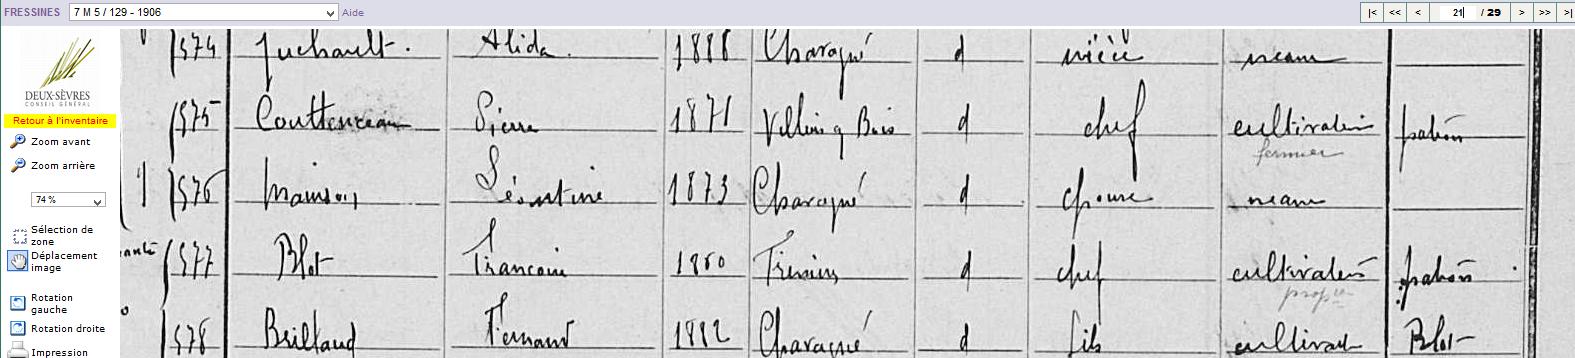 FRESSINES 7 M 5 / 129 - 1906 Aide |< << < 21 / 29 > >> >|
DEUX-SÈVRES
CONSEIL GÉNÉRAL
Retour à l'inventaire
Zoom avant
Zoom arrière
74 %
Sélection de
zone
Déplacement
image
Rotation
gauche
Rotation droite
Impression
574 Juchault. Alida 1888 Charagné d nièce néant
575 Couttenceau Pierre 1871 d chef cultivateur patron
fermier
576 Léontine 1873 Charagné d épouse néant
577 Blot François 1860 d chef cultivateur patron
propre
578 Brillaud Fernand 1882 Charagné d fils cultivat Blot